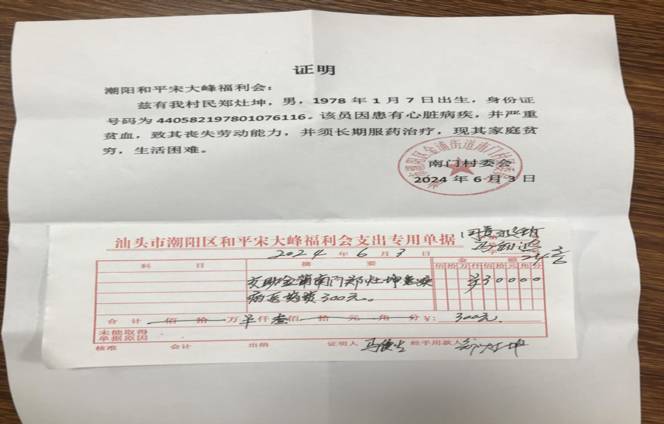 证明
潮阳和平宋大峰福利会：
兹有我村民郑灶坤，男，1978 年 1 月 7 日出生，身份证
号码为 440582197801076116。该员因患有心脏病疾，并严重
贫血，致其丧失劳动能力，并须长期服药治疗，现其家庭贫
穷，生活困难。
南门村委会
2024 年 6 月 3 日
汕头市潮阳区和平宋大峰福利会支出专用单据
2024 年 6 月 3 日
科 目 摘 要 金 额
佰 拾 万 仟 佰 拾 元 角 分
支助金浦南门郑灶坤患疾 ¥30000
病医药费300元。
合计 佰 拾 万 仟 叁 佰 拾 元 角 分 ¥: 300元
未能取得
单据原因
核准 会计 出纳 证明人 经手用款人 郑灶坤